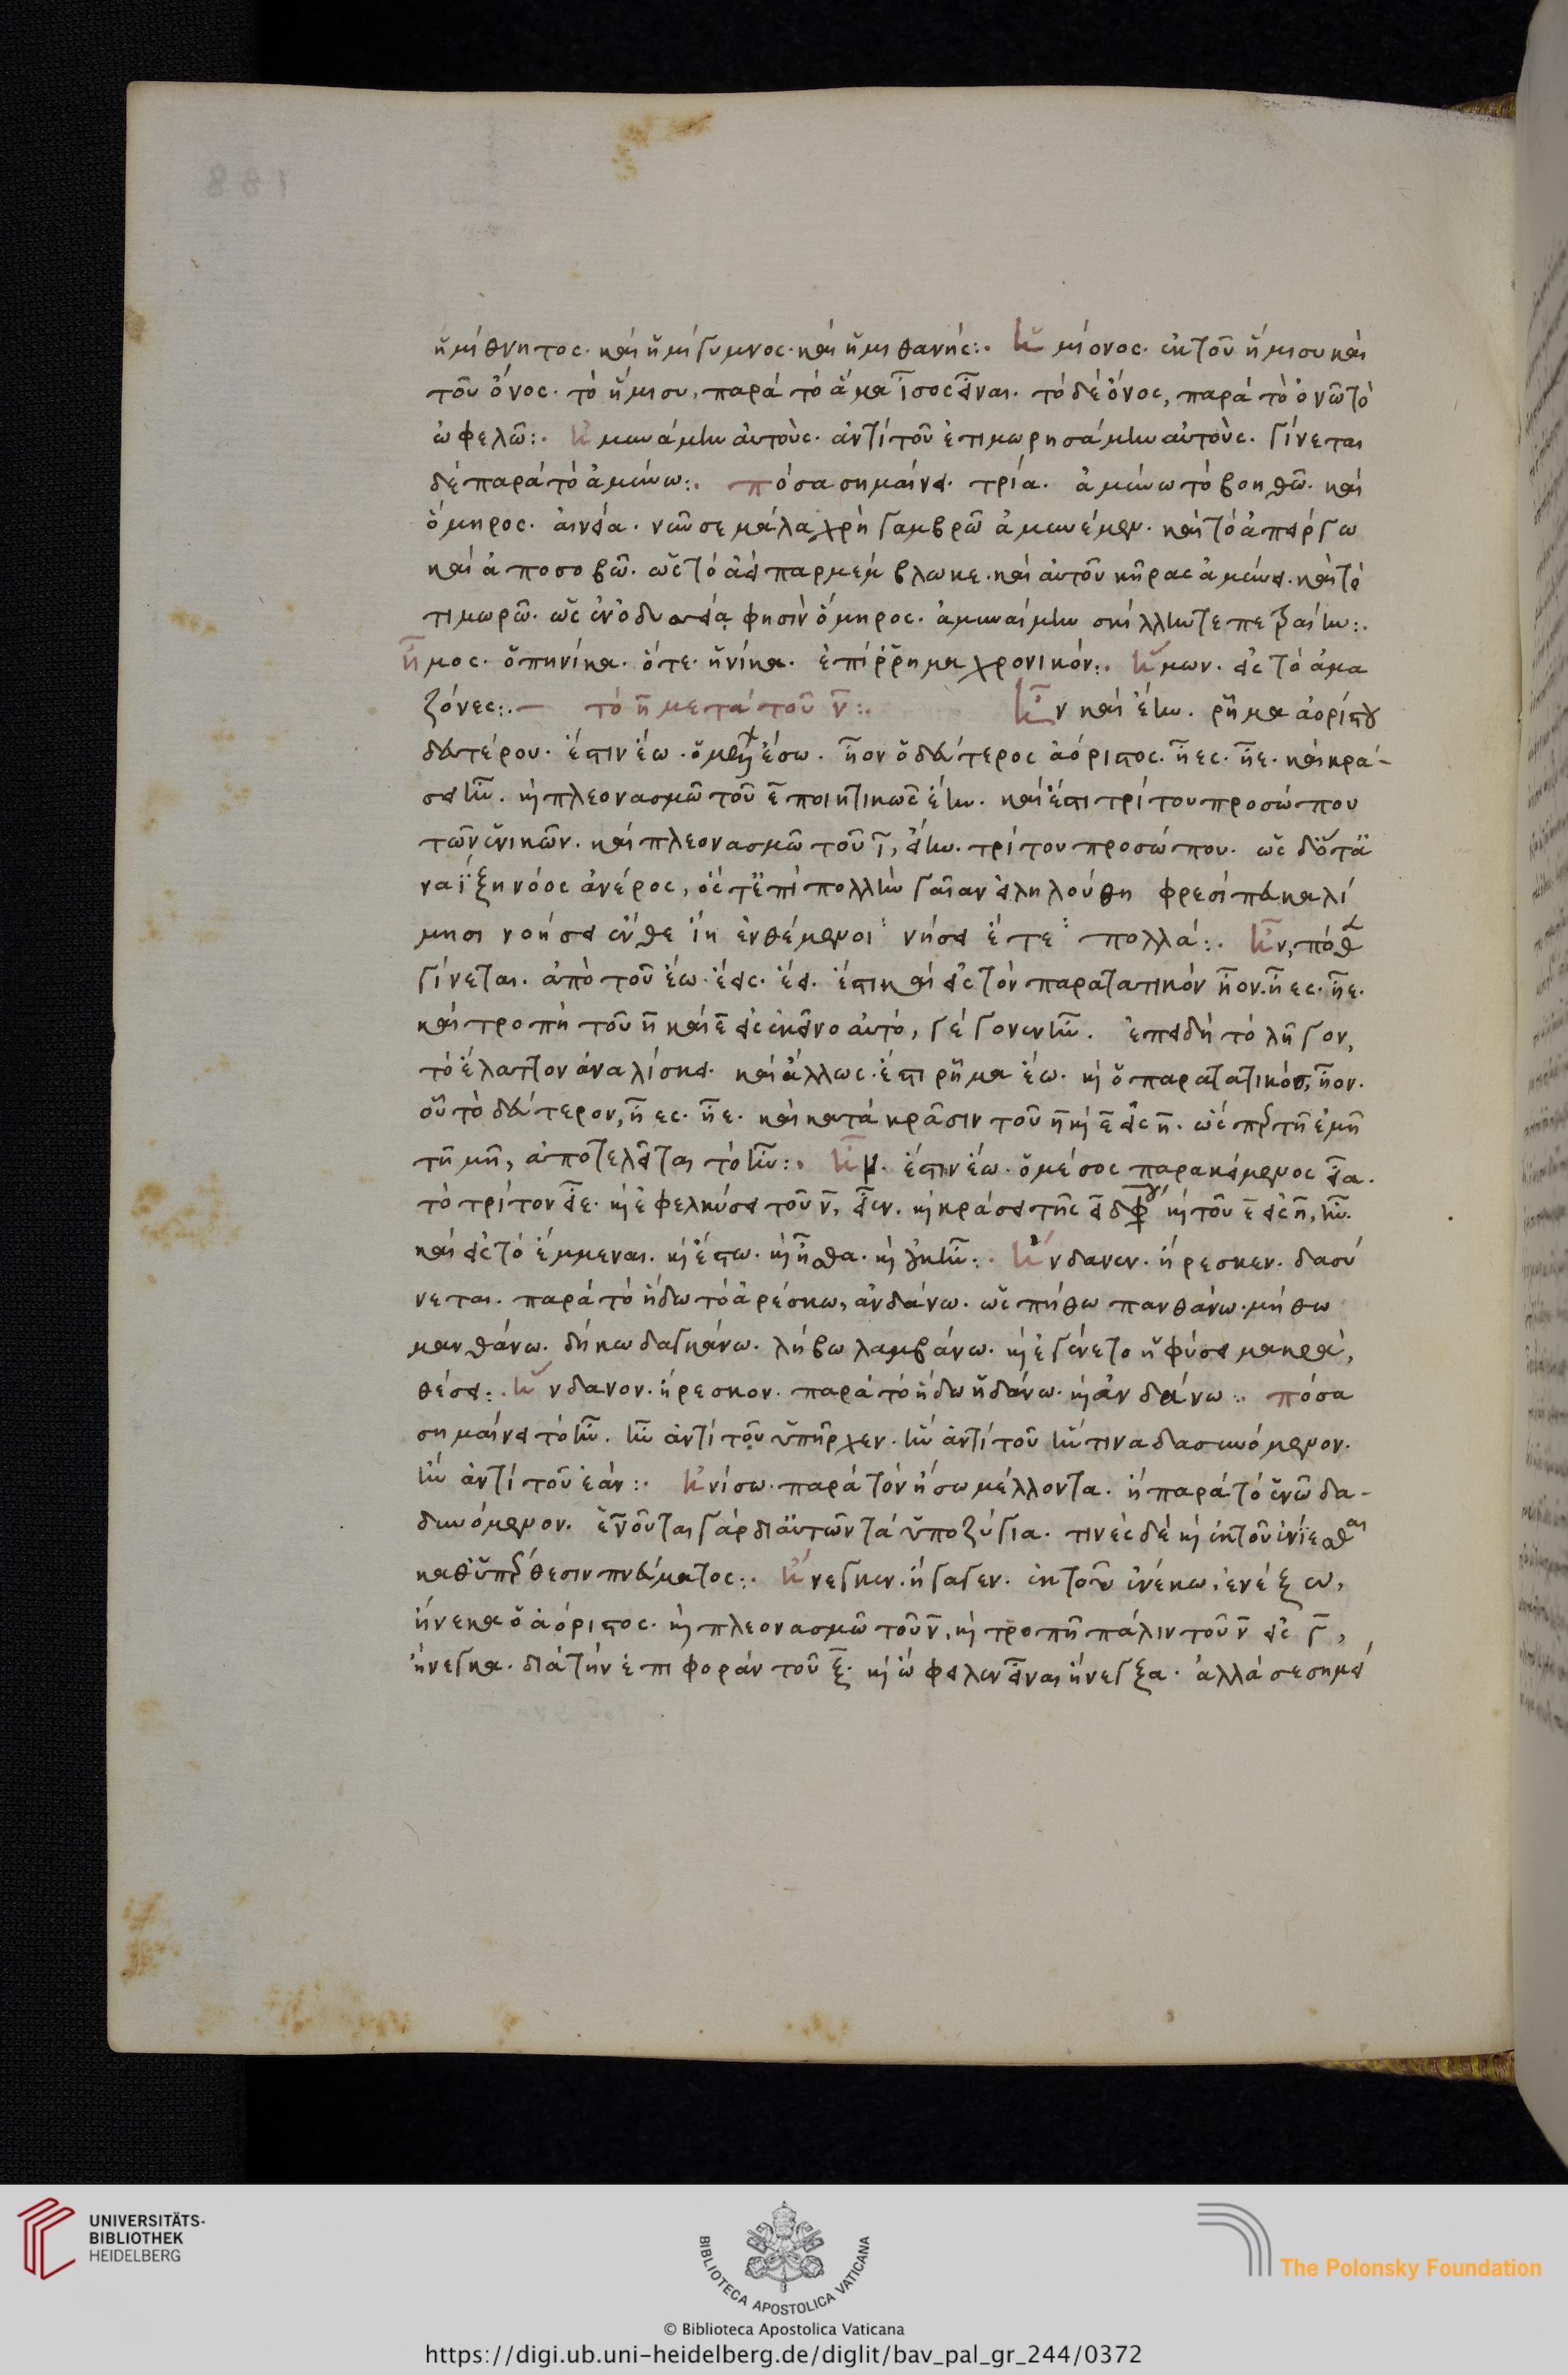 ἡμίθνητος· καὶ ἡμίγυμνος· καὶ ἡμιθανής:. ἡμίονος· ἐκ τοῦ ἥμισυ καὶ
τοῦ ὄνος· τὸ ἥμισυ, παρὰ τὸ ἅμα ἴσος εἶναι· τὸ δὲ ὄνος, παρὰ τὸ ὀνῶ τὸ
ὠφελῶ:. ἠμυνάμην αὐτούς· ἀντὶ τοῦ ἐτιμωρησάμην αὐτούς· γίνεται
δὲ παρὰ τὸ ἀμύνω:. πόσα σημαίνει· τρία· ἀμύνω τὸ βοηθῶ· καὶ
ὅμηρος· αἰνεία· νῦν σε μάλα χρὴ γαμβρῷ ἀμυνέμεν· καὶ τὸ ἀπείργω
καὶ ἀποσοβῶ· ὡς τὸ ἀεὶ παρμέμβλωκε· καὶ αὐτοῦ κῆρας ἀμύνει· καὶ τὸ
τιμωρῶ· ὡς ἐν ὀδυσσείᾳ φησὶν ὅμηρος· ἀμυναίμην σκύλλην
ἦμος· ὁπηνίκα· ὅτε· ἡνίκα· ἐπίρρημα χρονικόν:. ἥμων· εἰς τὸ ἀμα
ζόνες:.— τὸ η μετὰ τοῦ ν:. ἦν καὶ ἔην· ῥῆμα ἀορίστου
δευτέρου· ἔστιν ἔω· ὁ μέλλων ἔσω· ἦον ὁ δεύτερος ἀόριστος· ἦες· ἦε· καὶ κρά-
σει ἦν· καὶ πλεονασμῷ τοῦ ε ποιητικῶς ἔην· καὶ ἔστι τρίτου προσώπου
τῶν ἑνικῶν· καὶ πλεονασμῷ τοῦ ι, εἴην· τρίτου προσώπου· ὡς δ' ὅτ' ἂ
ν ἀΐξῃ νόος ἀνέρος, ὅς τ' ἐπὶ πολλὴν γαῖαν ἐληλούθη φρεσὶ πευκαλί
μῃσι νοήσει ἔνθ' εἴην ἐνθέμενοι νήσει ἔτε πολλά:. ἦν, πόθεν
γίνεται· ἀπὸ τοῦ ἔω· ἔεις· ἔει· ἔστι καὶ εἰς τὸν παρατατικὸν ἦον· ἦες· ἦε·
καὶ τροπῇ τοῦ η καὶ ε εἰς ἐκεῖνο αὐτό, γέγονεν ἦν· ἐπειδὴ τὸ λῆγον,
τὸ ἔλαττον ἀναλίσκει· καὶ ἄλλως· ἔστι ῥῆμα ἔω· καὶ ὁ παρατατικός, ἦον·
οὗ τὸ δεύτερον, ἦες· ἦε· καὶ κατὰ κρᾶσιν τοῦ η καὶ ε εἰς η· ὡς παρὰ τῇ ἐμῇ
τῇ μῇ, ἀποτελεῖται τὸ ἦν:. ἦν· ἔστιν ἔω· ὁ μέσος παρακείμενος εἶα·
τὸ τρίτον εἶε· καὶ ἐφελκύσει τοῦ ν, εἶεν· καὶ κράσει τῆς ει διφθόγγου καὶ τοῦ ε εἰς η, ἦν·
καὶ εἰς τὸ ἔμμεναι· καὶ ἔστω· καὶ ἦσθα· καὶ :. ἥνδανεν· ἤρεσκεν· δασύ
νεται· παρὰ τὸ ἥδω τὸ ἀρέσκω, ἁνδάνω· ὡς πήθω πανθάνω· μήθω
μανθάνω· δήκω δαγκάνω· λήβω λαμβάνω· καὶ ἐγένετο ἡ φύσει μακρά,
θέσει:. ἥνδανον· ἤρεσκον· παρὰ τὸ ἥδω ἡδάνω· καὶ ἁνδάνω:. πόσα
σημαίνει τὸ ἦν· ἦν ἀντὶ τοῦ ὑπῆρχεν· ἣν ἀντὶ τοῦ ἥντινα δασυνόμενον·
ἢν ἀντὶ τοῦ ἐάν:. ἡνίσω· παρὰ τὸν ἥσω μέλλοντα· ἢ παρὰ τὸ ἑνῶ δα-
συνόμενον· ἑνοῦται γὰρ δι' αὐτῶν τὰ ὑποζύγια· τινὲς δὲ καὶ ἐκ τοῦ ἐνίεσθαι
καθ' ὑπέρθεσιν πνεύματος:. ἤνεγκεν· ἤγαγεν· ἐκ τοῦ ἐνέκω· ἐνέξω,
ἤνεκα ὁ ἀόριστος· καὶ πλεονασμῷ τοῦ ν, καὶ τροπῇ πάλιν τοῦ ν εἰς γ,
ἤνεγκα· διὰ τὴν ἐπιφορὰν τοῦ ξ· καὶ ὤφειλεν εἶναι ἤνεγξα· ἀλλὰ σεσημεί
UNIVERSITÄTS-
BIBLIOTHEK
HEIDELBERG
BIBLIOTECA APOSTOLICA VATICANA
The Polonsky Foundation
© Biblioteca Apostolica Vaticana
https://digi.ub.uni-heidelberg.de/diglit/bav_pal_gr_244/0372